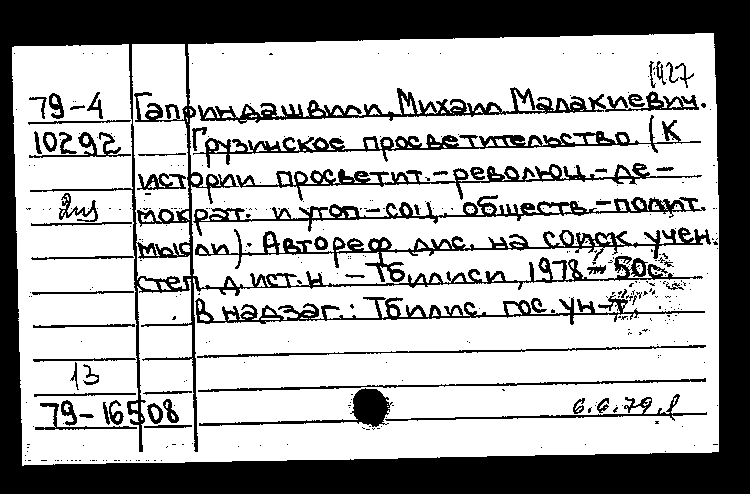 1927
79-4 Гаприндашвили, Михаил Малакиевич.
10292 Грузинское просветительство. (К
истории просветит.-революц.-де-
2из мократ. и утоп-соц. обществ.-полит.
мысли): Автореф. дис. на соиск. учен.
степ. д. ист. н. - Тбилиси, 1978 - 50с.
В надзаг.: Тбилис. гос. ун-т
13
79-16508 6.6.79.